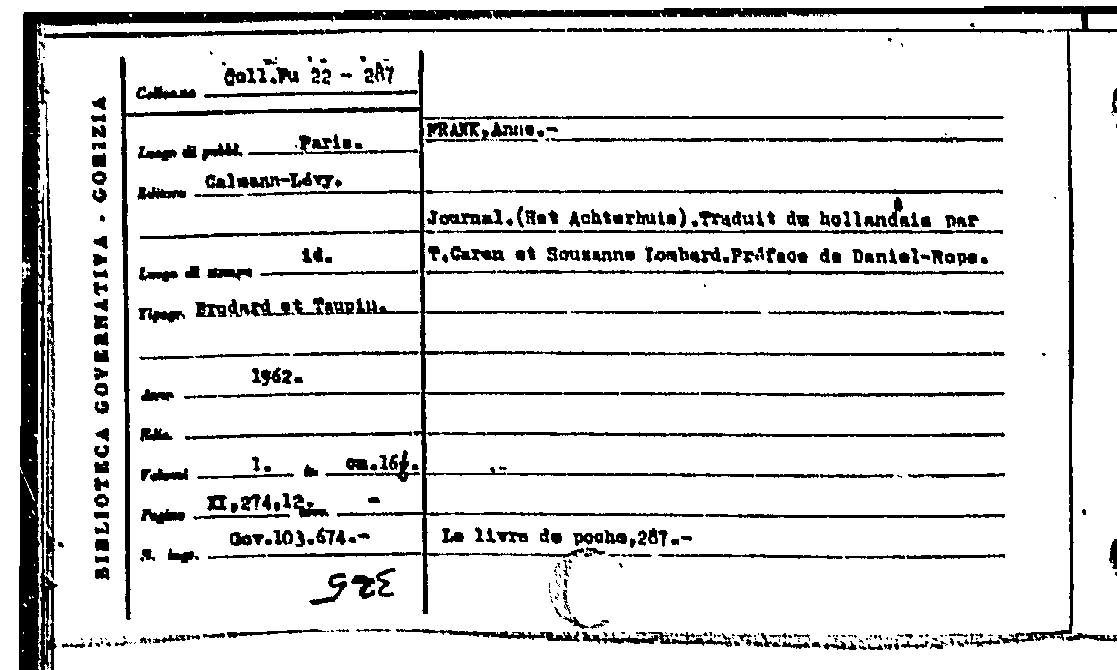 BIBLIOTECA GOVERNATIVA - GORIZIA
Collocaz. Coll.Fu 22 - 287
Luogo di pubbl. Paris.
Editore Calmann-Lévy.
Luogo di stampa id.
Tipogr. Brodard et Taupin.
Anno 1962.
Ediz.
Volumi 1. in cm.16½.
Pagine XI,274,12. -
N. ingr. Gov.103.674.-
325
FRANK,Anne.-
Journal.(Het Achterhuis).Traduit du hollandais par
T.Caren et Souzanne Lombard.Préface de Daniel-Rops.
Le livre de poche,287.-